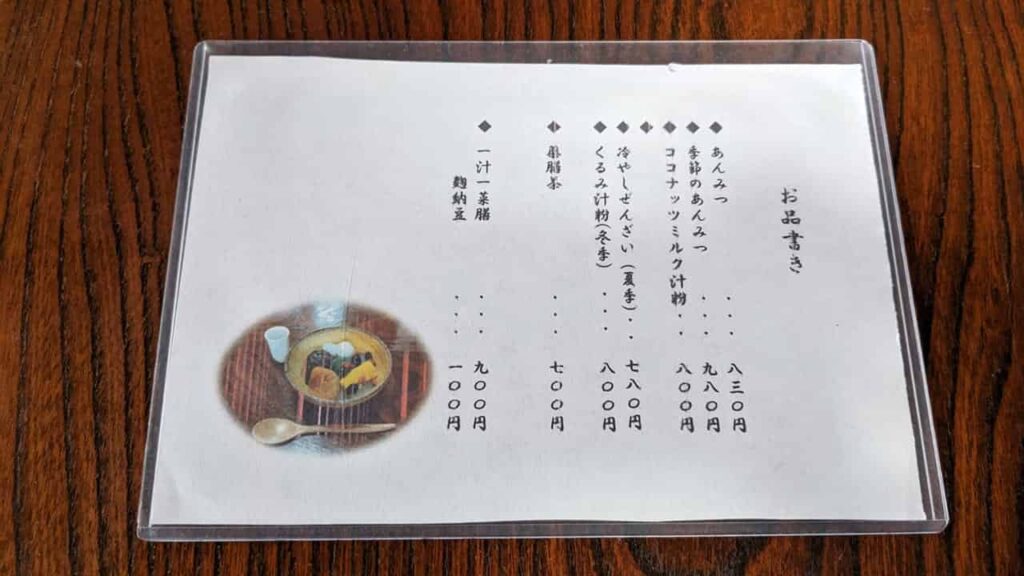 お品書き
◆ あんみつ ・・・ 八三〇円
◆ 季節のあんみつ ・・・ 九八〇円
◆ ココナッツミルク汁粉 ・・ 八〇〇円
◆
◆ 冷やしぜんざい(夏季)・・ 七八〇円
◆ くるみ汁粉(冬季) ・・・ 八〇〇円
◆ 薬膳茶 ・・・ 七〇〇円
◆ 一汁一菜膳 ・・・ 九〇〇円
麹納豆 ・・・ 一〇〇円